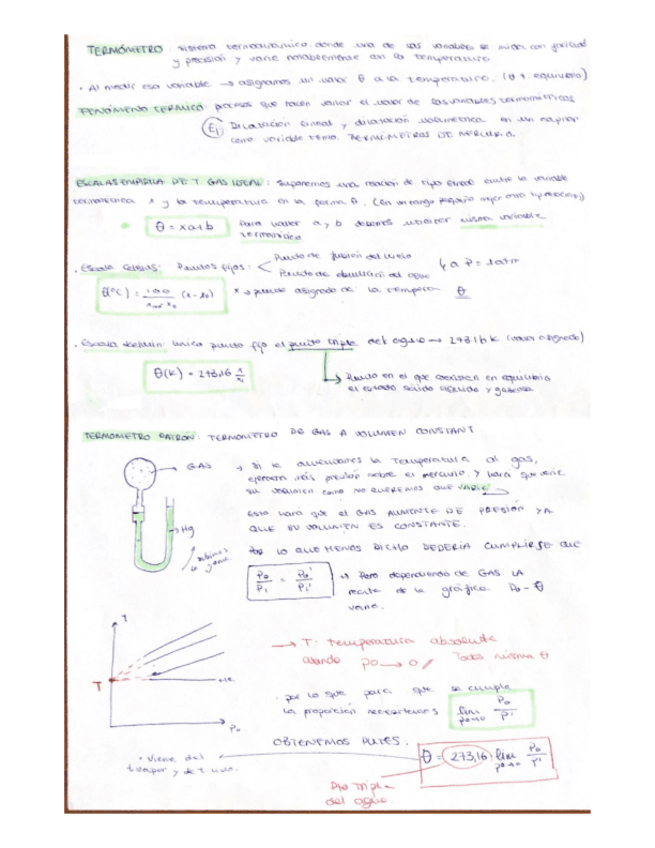 TERMÓMETRO: sistema termodinámico donde una de las variables se mida con facilidad
y precisión y varie notablemente con la temperatura
· Al medir esa variable → asignamos un valor θ a la temperatura. (θ t. equilibrio)
FENÓMENO TÉRMICO: procesos que hacen variar el valor de las variables termométricas
Ej Dilatación lineal y dilatación volumétrica en un capilar
como variable termo. TERMÓMETROS DE MERCURIO.
ESCALAS EMPÍRICA DE T GAS IDEAL: Suponemos una relación de tipo lineal entre la variable
termométrica x y la temperatura en la forma θ. (En un rango pequeño
θ = xa+b para valor a y b debemos utilizar misma variable
termométrica
· Escala Celsius: Puntos fijos: Punto de fusión del hielo
Punto de ebullición del agua ↳ a P = 1atm
θ(ºC) = 100 / x100 - x0 (x - x0) x → punto asignado de la tempera θ
· Escala Kelvin: único punto fijo el punto triple del agua → 273,16 K (valor asignado)
θ(K) = 273,16 x/x1
↳ Punto en el que coexisten en equilibrio
el estado sólido líquido y gaseoso
TERMOMETRO PATRON: TERMOMETRO DE GAS A VOLUMEN CONSTANT
GAS → Si le aumentamos la Temperatura al gas,
ejercerá más presión sobre el mercurio, y hará que varíe
su volumen como NO QUEREMOS QUE VARIE
Hg
esto hará que el GAS AUMENTE DE PRESIÓN YA
QUE SU VOLUMEN ES CONSTANTE.
POR LO QUE HEMOS DICHO DEBERÍA CUMPLIRSE QUE
P0/P1 = P0'/P1' → Pero dependiendo de GAS LA
recta de la gráfica P0 - θ
varia.
T
→ T: temperatura absolute
cuando P0 → 0 // Todos misma θ
T
P0
· por lo que para que se cumpla
la proporción necesitamos lim P0→0 P0/P'
OBTENEMOS PUES: θ = 273,16 lim P0→0 P0/P'
· Viene del
t. vapor y de
Pto Triple
del agua.